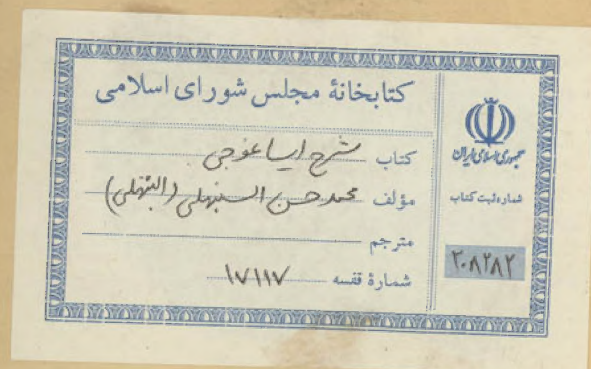 کتابخانهٔ مجلس شورای اسلامی
کتاب شرح ایساغوجی
مؤلف محمدحسن السنبهلی (البتهلی)
مترجم
شمارهٔ قفسه ۱۷۱۱۷
جمهوری اسلامی ایران
شماره ثبت کتاب
۳۰۸۲۸۲